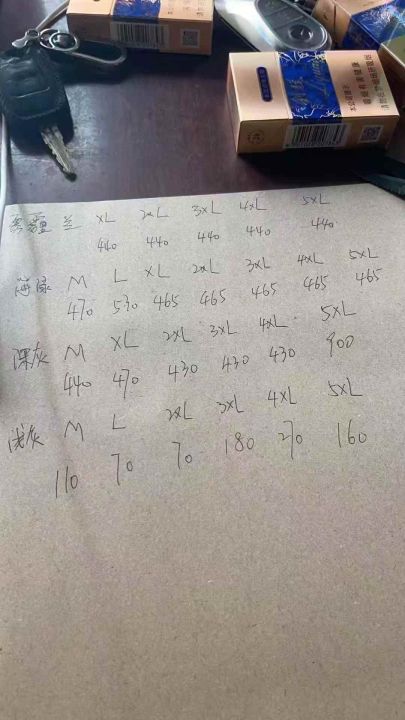 雾霾兰 XL 2XL 3XL 4XL 5XL
440 440 440 440 440
M L XL 2XL 3XL 4XL 5XL
470 530 465 465 465 465 465
深灰 M XL 2XL 3XL 4XL 5XL
440 470 430 430 430 900
浅灰 M L 2XL 3XL 4XL 5XL
110 70 70 180 270 160
本公司提示
吸烟有害健康